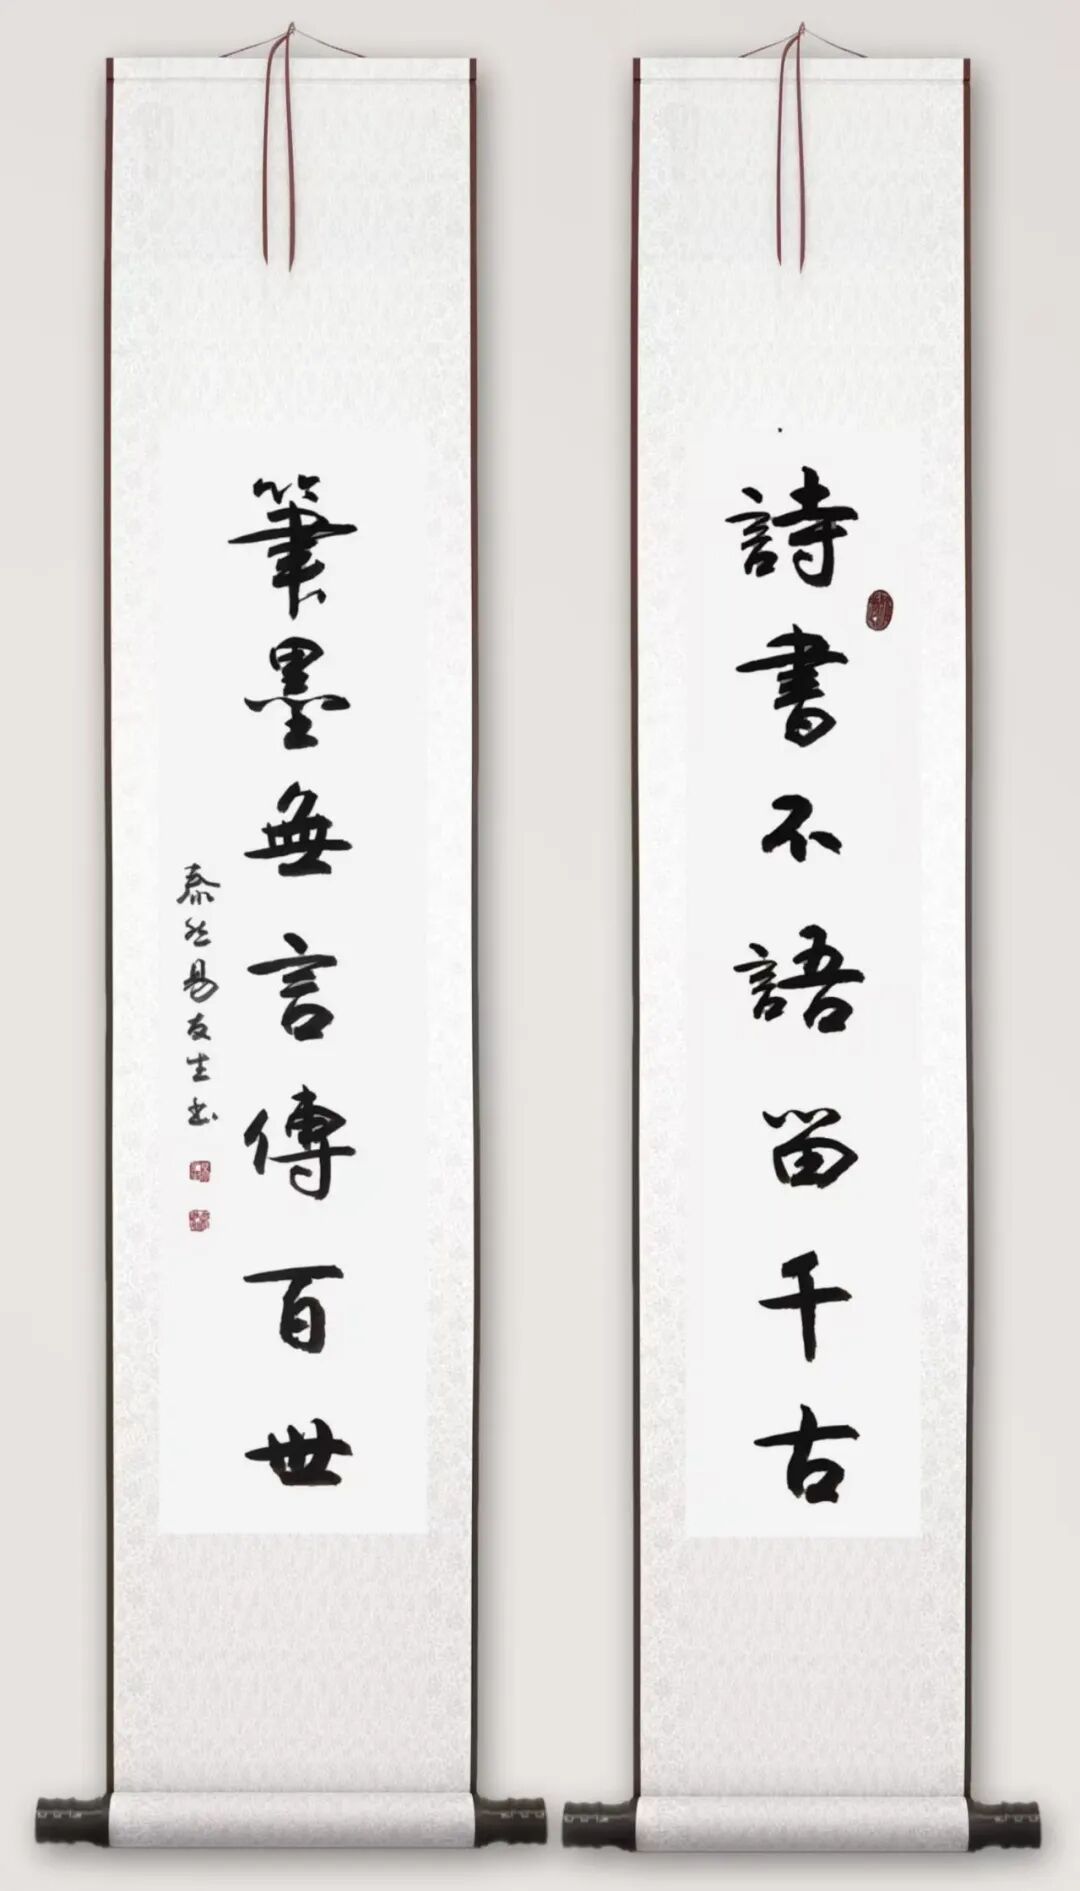 詩書不語留千古
筆墨無言傳百世
泰然易友生书